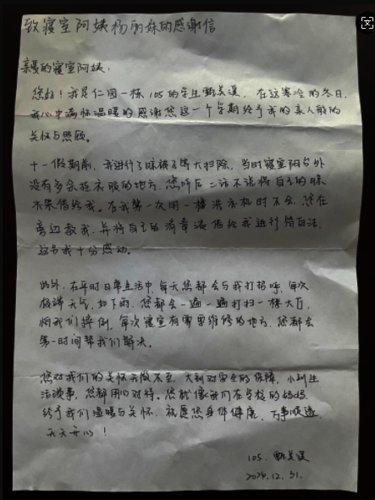 致寝室阿姨杨丽妹的感谢信
亲爱的寝室阿姨:
您好!我是仁园一栋105的学生甄美灵,在这寒冷的冬日,
我心中满怀温暖的感谢您这一个学期给予我的亲人般的
关怀与照顾。
十一假期前,我进行了床被子等大扫除,当时寝室阳台外
没有多余挂衣服的地方,您听后二话不说将自己的
借给我。在我第一次用一楼洗衣机时不会,您在
旁边教我,并将自己的清章 借给我进行
这令我十分感动。
此外,在平时日常生活中,每天您都会与我打招呼,每次
极端天气,如下雨,您都会一遍一遍打扫一楼大厅,
怕我们摔倒,每次寝室有需要维修的地方,您都会
第一时间帮我们解决。
您对我们的关怀无微不至,大到对安全的保障,小到生
活琐事,您都用心对待。您就像我们在学校的妈妈
给予我们温暖与关怀,祝愿您身体健康,万事顺遂,
天天开心!
105.甄美灵
2024.12.31.